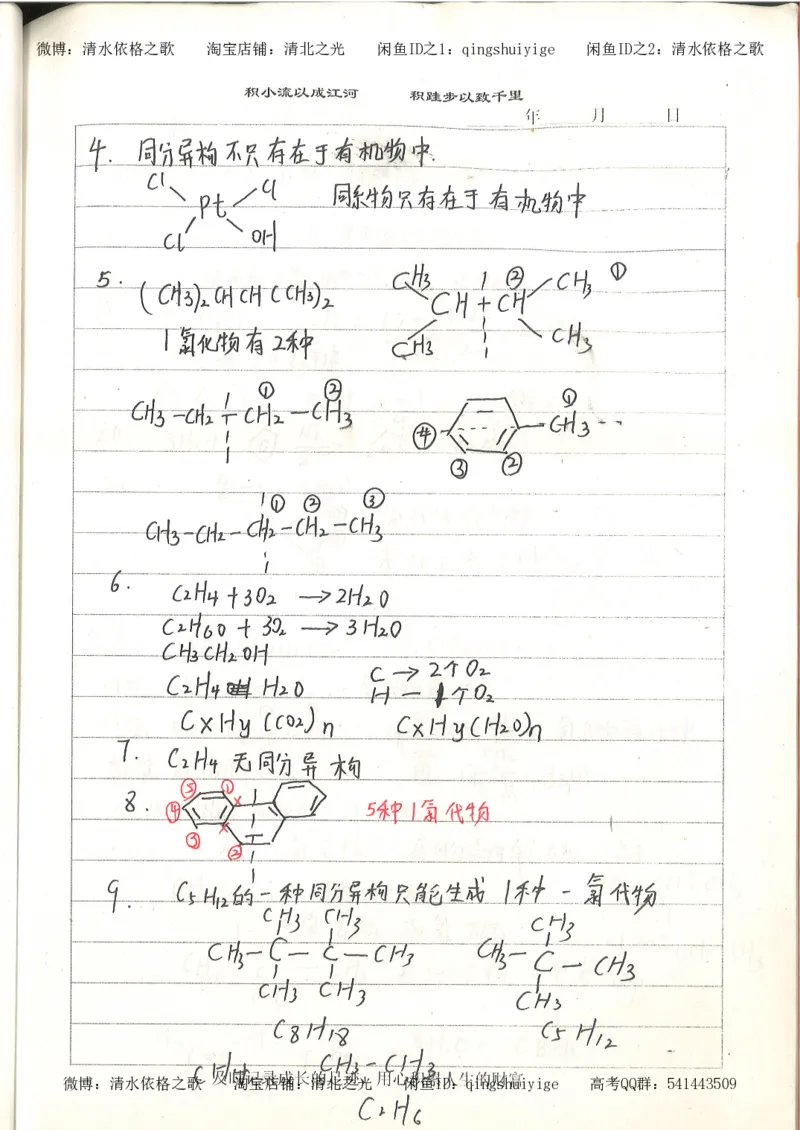 微博：清水依格之歌 淘宝店铺：清北之光 闲鱼ID之1：qingshuiyige 闲鱼ID之2：清水依格之歌
积小流以成江河 积跬步以致千里
年 月 日
4. 同分异构不只存在于有机物中.
Cl Cl
Pt
Cl OH
同系物只存在于有机物中
5. (CH3)2CHCH(CH3)2
1氯化物有2种
CH3 ② CH3 ①
CH CH
CH3 CH3
CH3-CH2-CH2-CH3
① ②
①
CH3
④ ③ ②
① ② ③
CH3-CH2-CH2-CH2-CH3
6. C2H4+3O2 →2H2O
C2H6O+3O2→3H2O
CH3CH2OH
C2H4 H2O
C→2个O2
H—1个O2
CxHy(CO2)n CxHy(H2O)n
7. C2H4无同分异构
8. ⑤ ① ④ ③ ② 5种1氯代物
9. C5H12的一种同分异构只能生成1种一氯代物
CH3 CH3
CH3-C-C-CH3
CH3 CH3
C8H18
CH3
CH3-C-CH3
CH3
C5H12
CH3-CH3
微博：清水依格之歌 淘宝店铺：清北之光 闲鱼ID之1：qingshuiyige 高考QQ群：541443509
C2H6